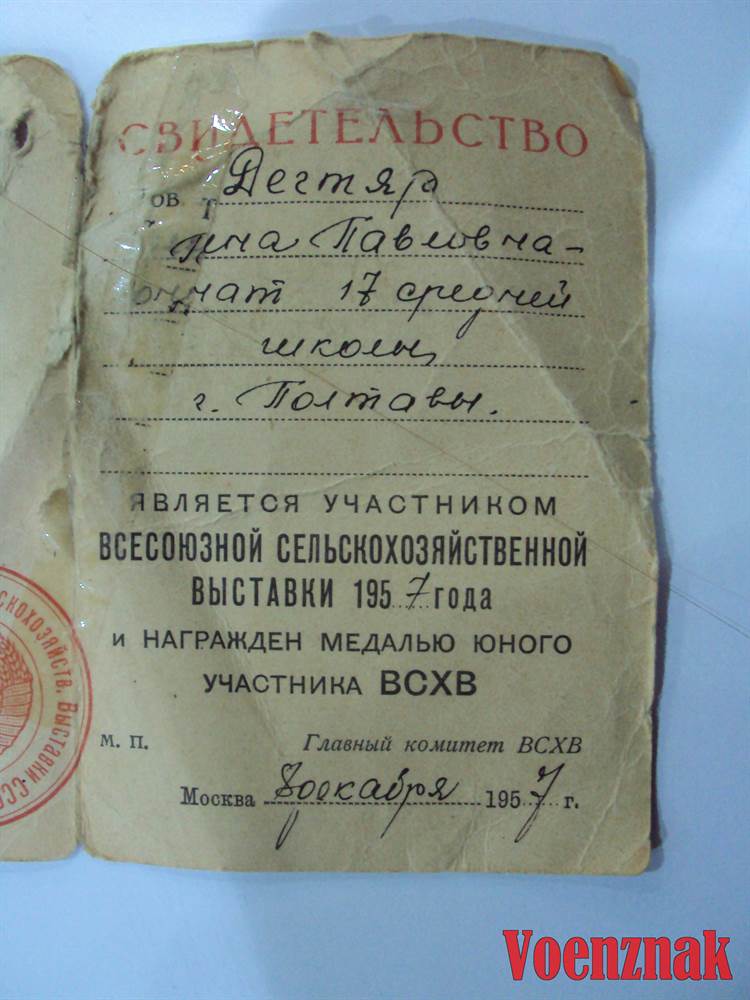 СВИДЕТЕЛЬСТВО
ОВ Т Дегтяр
Павловна-
17 средней
школы
г. Полтавы.
ЯВЛЯЕТСЯ УЧАСТНИКОМ
ВСЕСОЮЗНОЙ СЕЛЬСКОХОЗЯЙСТВЕННОЙ
ВЫСТАВКИ 1957 года
и НАГРАЖДЕН МЕДАЛЬЮ ЮНОГО
УЧАСТНИКА ВСХВ
М. П. Главный комитет ВСХВ
Москва 8 декабря 1957 г.
скохозяйств. Выставки ССС
Voenznak